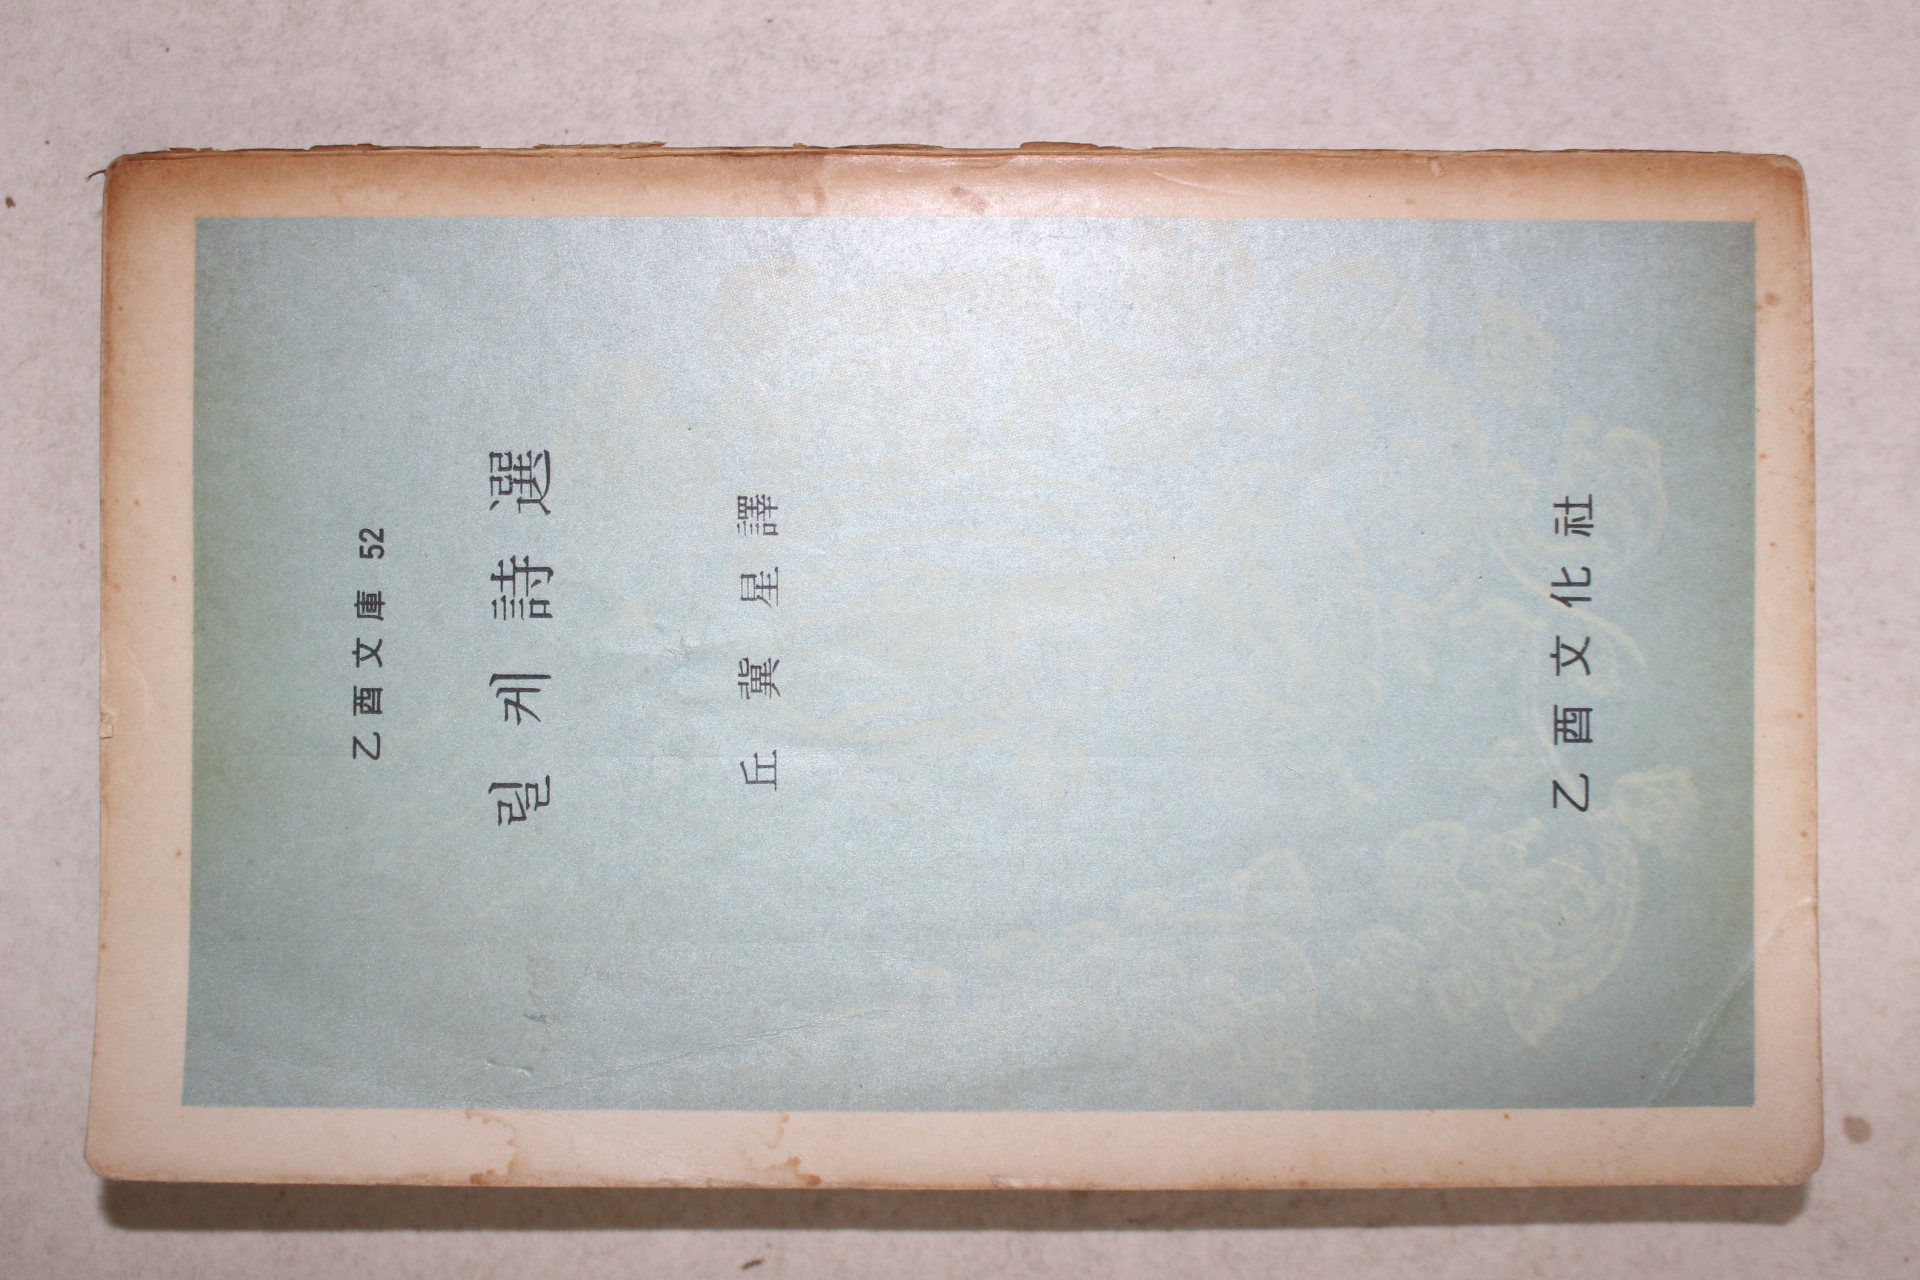 乙酉文庫 52
릴케詩選
丘冀星 譯
乙酉文化社